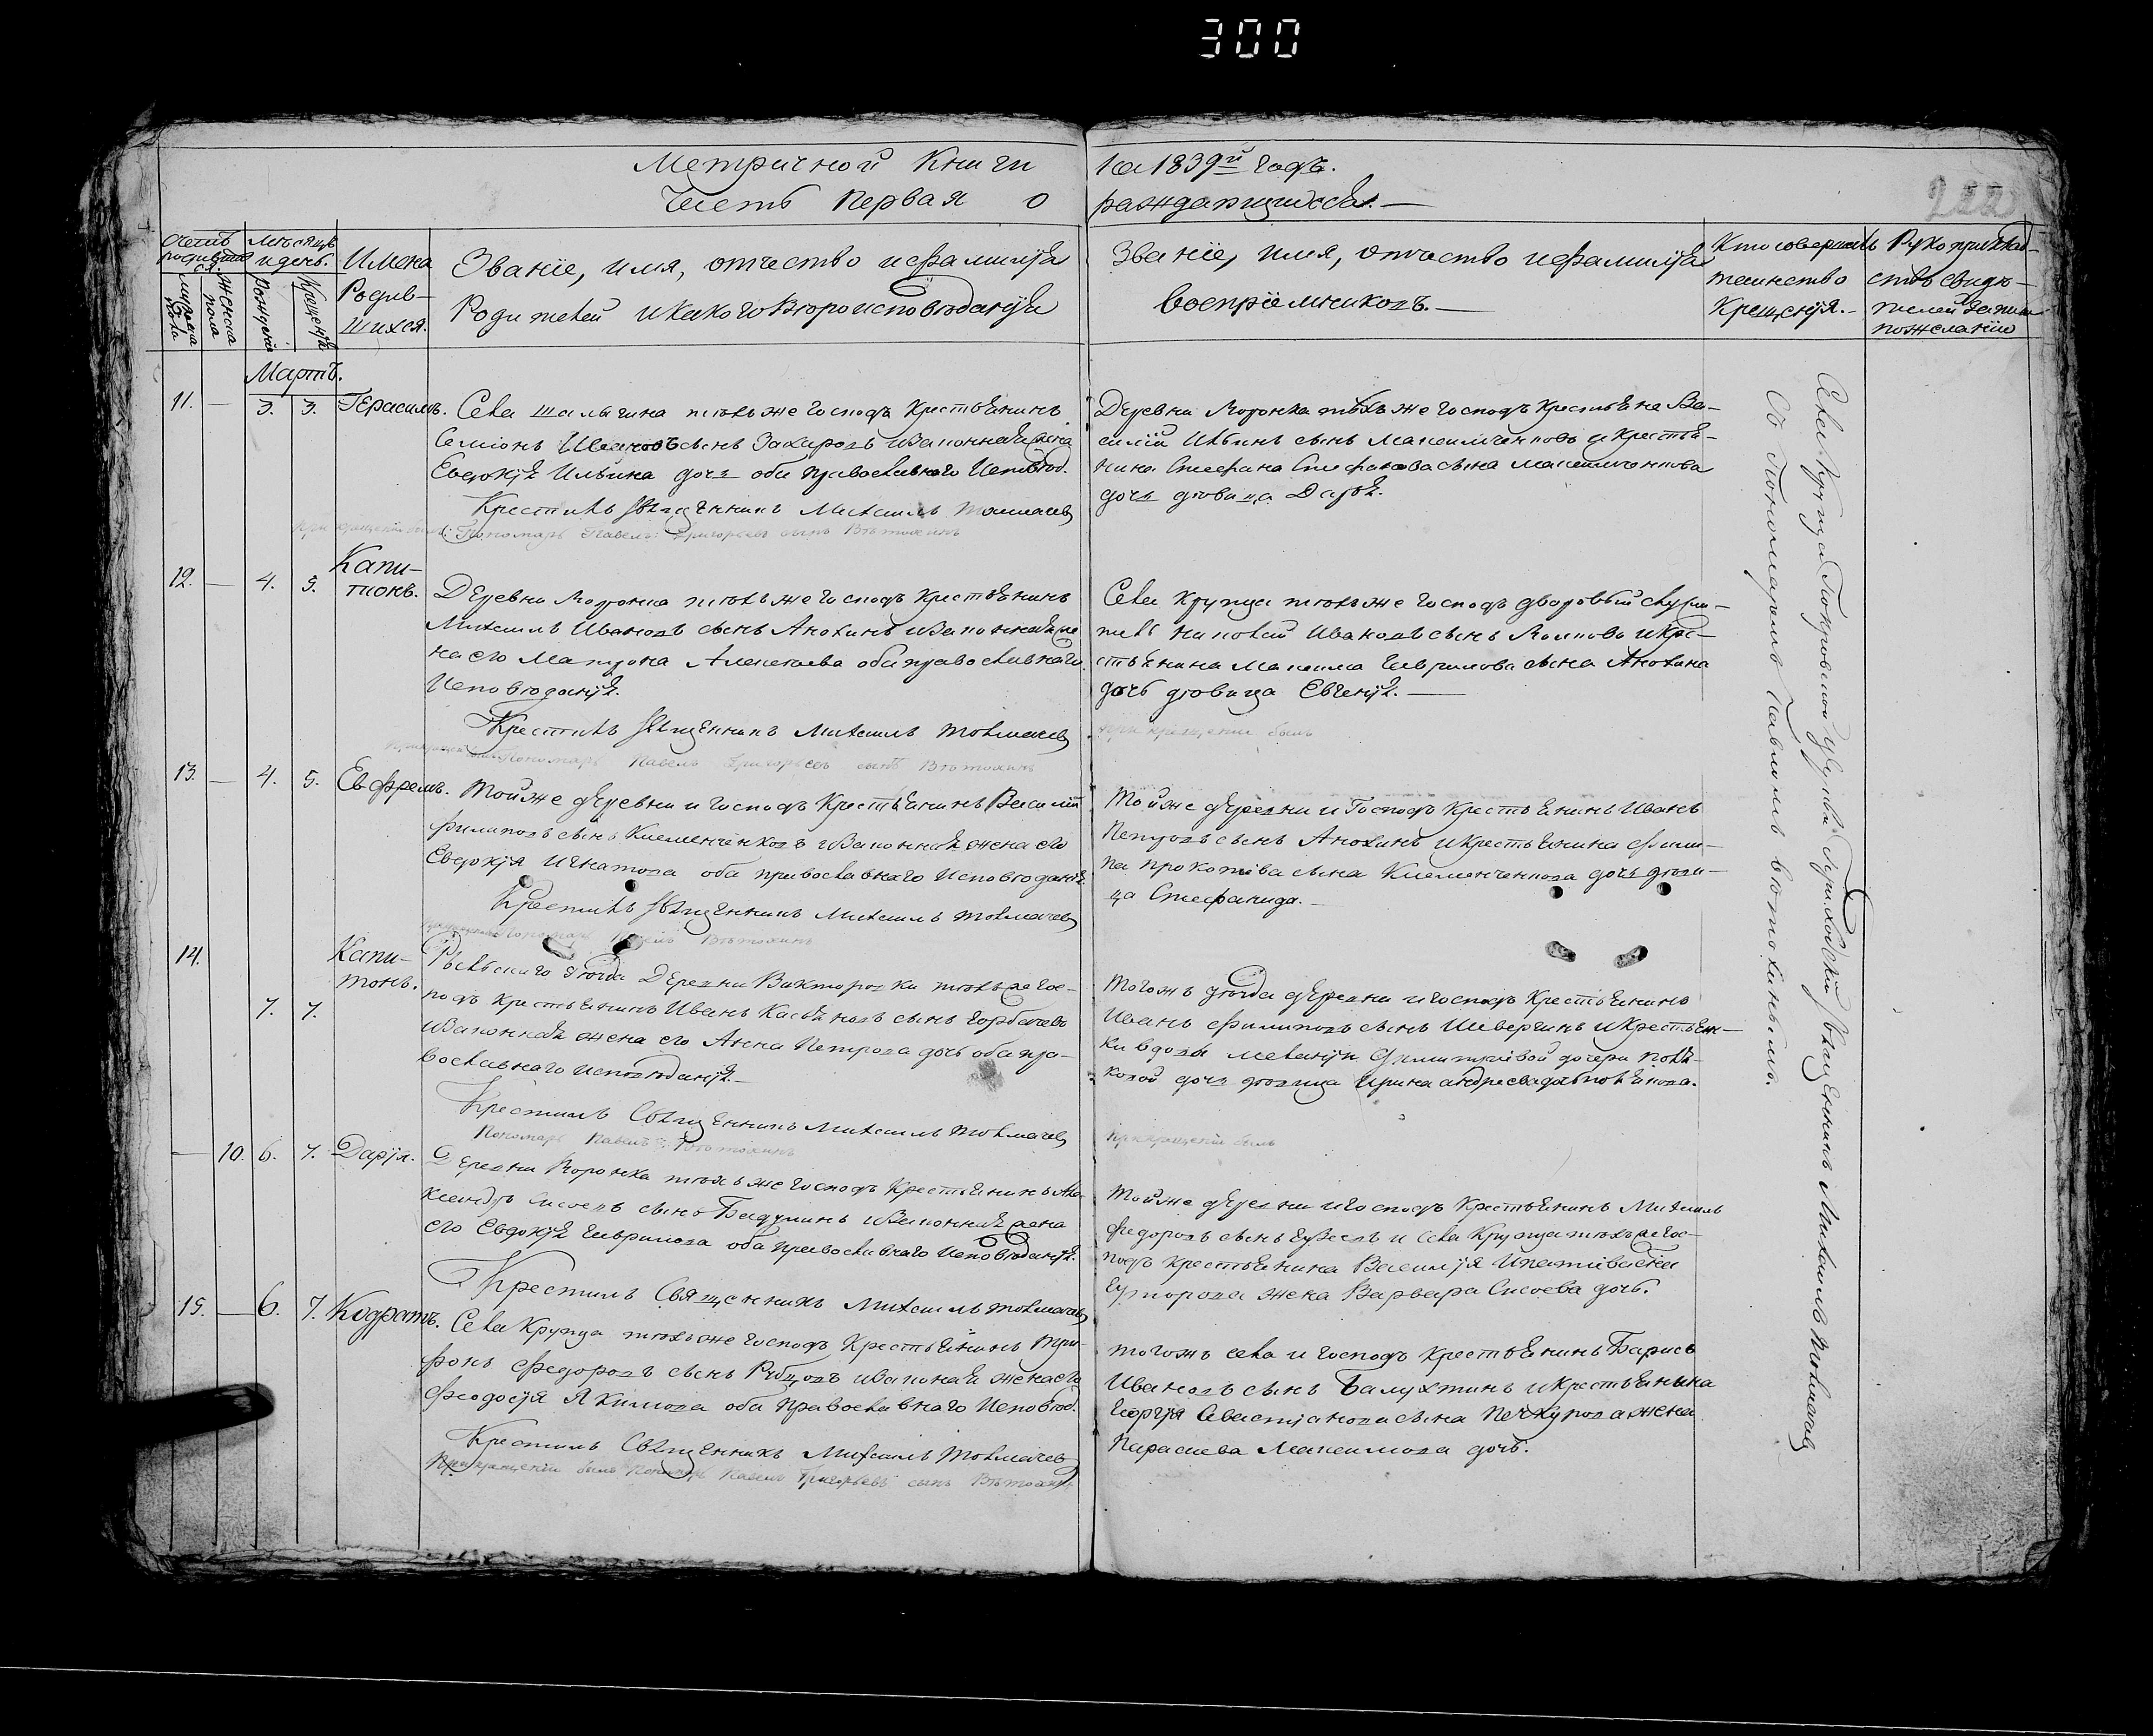 300
Метричной Книги на 1839й Годъ.
Часть Первая о раждающихся.
222
Счетъ родившихся
мужеска пола
женска пола
Мѣсяцъ и день.
Рожденія
Крещенія
Имена
Родив-
шихся.
Званіе, имя, отчество и фамилія
Родителей и какого вѣроисповѣданія
Званіе, имя, отчество и фамилія
воспріемниковъ.
Кто совершалъ
таинство
Крещенія.
Рукоприклад-
ство свидѣ-
телей записи
по желанію
Мартъ.
11. — 3. 3. Герасимъ.
Села Шалыгина тѣхъ же Господъ Крестьянинъ
Семіонъ Ивановъ сынъ Захаровъ и законная жена
Евдокія Ильина дочь оба православнаго Исповѣд.
Крестилъ священникъ Михаилъ Толмачевъ
при крещеніи былъ: Пономарь Павелъ Григорьевъ сынъ Вѣтохинъ
Деревни Воронка тѣхъ же Господъ крестьяне Ва-
силій Ильинъ сынъ Максимченковъ и крестья-
нина Стефана Стефанова сына Максимченкова
дочь девица Дарья.
12. — 4. 5. Капи-
тонъ.
Деревни Воронка тѣхъ же Господъ Крестьянинъ
Михаилъ Ивановъ сынъ Анохинъ и законная же-
на его Матрона Алексѣева оба православнаго
Исповѣданія.
Крестилъ священникъ Михаилъ Толмачевъ
Пономарь Павелъ Григорьевъ сынъ Вѣтохинъ
Села Крупца тѣхъ же Господъ дворовый служи-
тель Николай Ивановъ сынъ и кре-
стьянина Максима Гаврилова сына Анохина
дочь дѣвица Евгенія.
при крещеніи былъ
13. — 4. 5. Евфремъ.
Той же деревни и Господъ Крестьянинъ Василій
Филиповъ сынъ Клеменченковъ и законная жена его
Евдокія Игнатова оба православнаго Исповѣданія
Крестилъ священникъ Михаилъ Толмачевъ
Пономарь Павелъ Вѣтохинъ
Той же деревни и Господъ Крестьянинъ Иванъ
Петровъ сынъ Анохинъ и крестьянина Фили-
па Прокофіева сына Клеменченкова дочь дѣви-
ца Стефанида.
14. 7. 7. Капи-
тонъ.
Рыльскаго уѣзда Деревни Викторовки тѣхъ же Гос-
подъ крестьянинъ Иванъ Касьяновъ сынъ Горбачевъ
и законная жена его Анна Петрова дочь оба пра-
вославнаго исповѣданія.
Крестилъ Священникъ Михаилъ Толмачевъ
Пономарь Павелъ Вѣтохинъ
Того жъ уѣзда деревни и господъ Крестьянинъ
Иванъ Филиповъ сынъ Шевергинъ и крестьян-
ки вдовы Меланіи Димитріевой дочери Поля-
ковой дочь дѣвица Ирина Андреева дочь Полякова.
при крещеніи былъ
— 10. 6. 7. Дарія.
Деревни Воронка тѣхъ же Господъ Крестьянинъ Але-
ксандръ Сысоевъ сынъ и законная жена
его Евдокія Гаврилова оба православнаго Исповѣданія.
Крестилъ Священникъ Михаилъ Толмачевъ
Той же деревни и Господъ Крестьянинъ Михаилъ
Федоровъ сынъ Гузеевъ и Села Крупца тѣхъ же Гос-
подъ крестьянина Василія Ипатіева сына
жена Варвара Сысоева дочь.
15. — 6. 7. Кодратъ.
Села Крупца тѣхъ же Господъ Крестьянинъ Три-
фонъ Федоровъ сынъ Рубцовъ и законная жена его
Феодосія Якимова оба Православнаго Исповѣд.
Крестилъ Священникъ Михаилъ Толмачевъ
При крещеніи былъ Пономарь Павелъ Григорьевъ сынъ Вѣтохинъ
того жъ села и Господъ крестьянинъ Барисъ
Ивановъ сынъ Балухтинъ и крестьянина
Георгія Савастіанова сына Печкурова жена
Параскева Максимова дочь.
Села Крупца Покровской Церкви Приходскій Священникъ Михаилъ Толмачевъ
Съ Пономаремъ Павломъ Вѣтохинымъ.